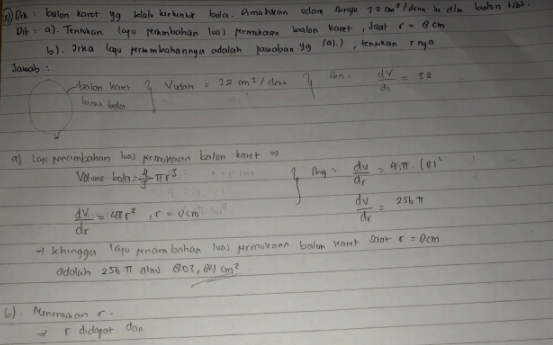 Dik : balon karet yg selalu berbentuk bola. Dimasukan udara dengan 32 cm³/detik ke dlm balon tsbt.
Dit : a). Tentukan laju perubahan luas permukaan balon karet, saat r = 8 cm
b). Jika laju perubahannya adalah jawaban yg (a).), tentukan r nya
Jawab :
balon karet
Vudara = 32 cm³/detik
dv/dt = 32
a) Laju penambahan luas permukaan balon karet ⇒
Volume bola = 4/3 πr³
dv/dr = 4πr², r = 8 cm
dv/dr = 4.π.(8)²
dv/dr = 256 π
⇒ Sehingga laju penambahan luas permukaan balon karet saat r = 8 cm
adalah 256 π atau 803,84 cm²
b). Menentukan r.
⇒ r didapat dari